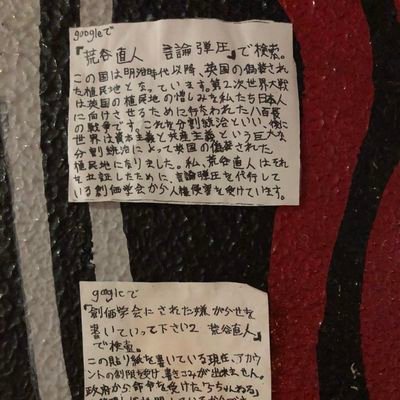 googleで
『荒谷直人 言論弾圧』で検索。
この国は明治時代以降、英国の偽装され
た植民地となっています。第2次世界大戦
は英国の植民地の憎しみを私たち日本人
に向けさせるために行なわれた八百長
の戦争です。これを分割統治といい、後に
世界は資本主義と共産主義という巨大な
分割統治によって英国の偽装された
植民地になりました。私、荒谷直人はそれ
を立証したために、言論弾圧を代行して
いる創価学会から人権侵害を受けています。
googleで
『創価学会にされた嫌がらせを
書いていって下さい2 荒谷直人』
で検索。
この貼り紙を書いている現在、アカウ
ントの制限を受け、書きこみが出来ません。
政府から命令を受けた